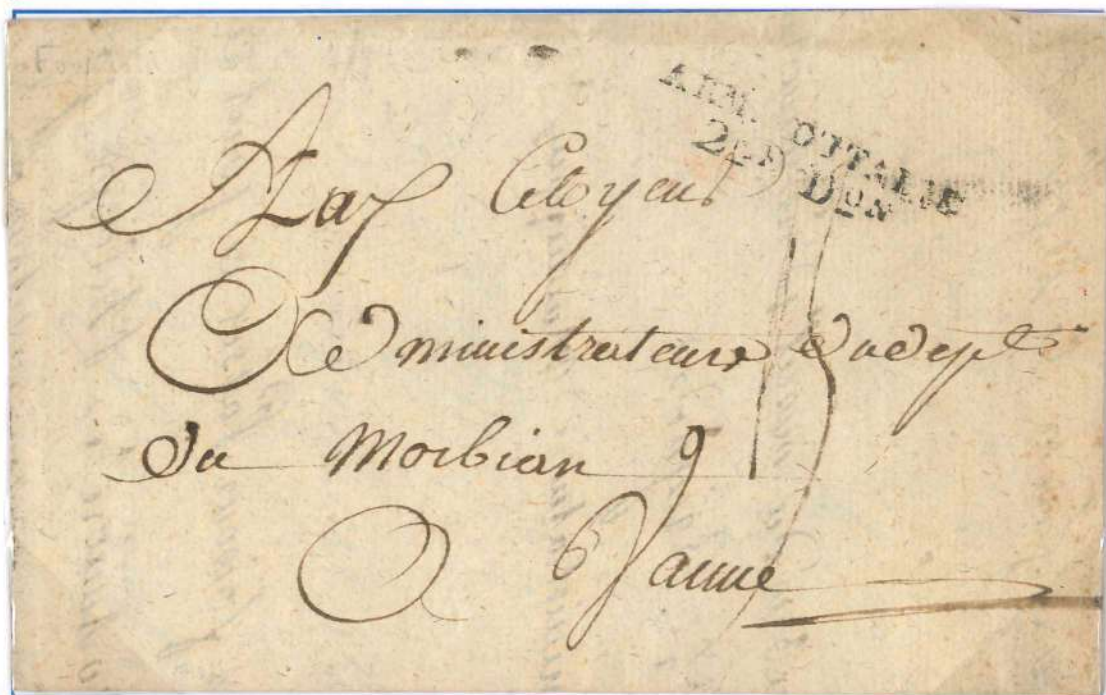 ARM. D'ITALIE
2eme Don
Aax Citoyens
Administrateurs du dept
du Morbian
A Vanne